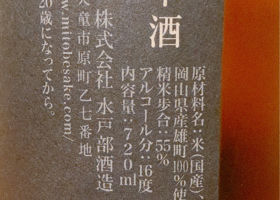 酒
原材料名:米(国産)、
岡山県産雄町100%使
精米歩合:55%
アルコール分:16度
内容量:720ml
株式会社 水戸部酒造
天童市原町乙七番地
www.mitobesake.com/
20歳になってから。